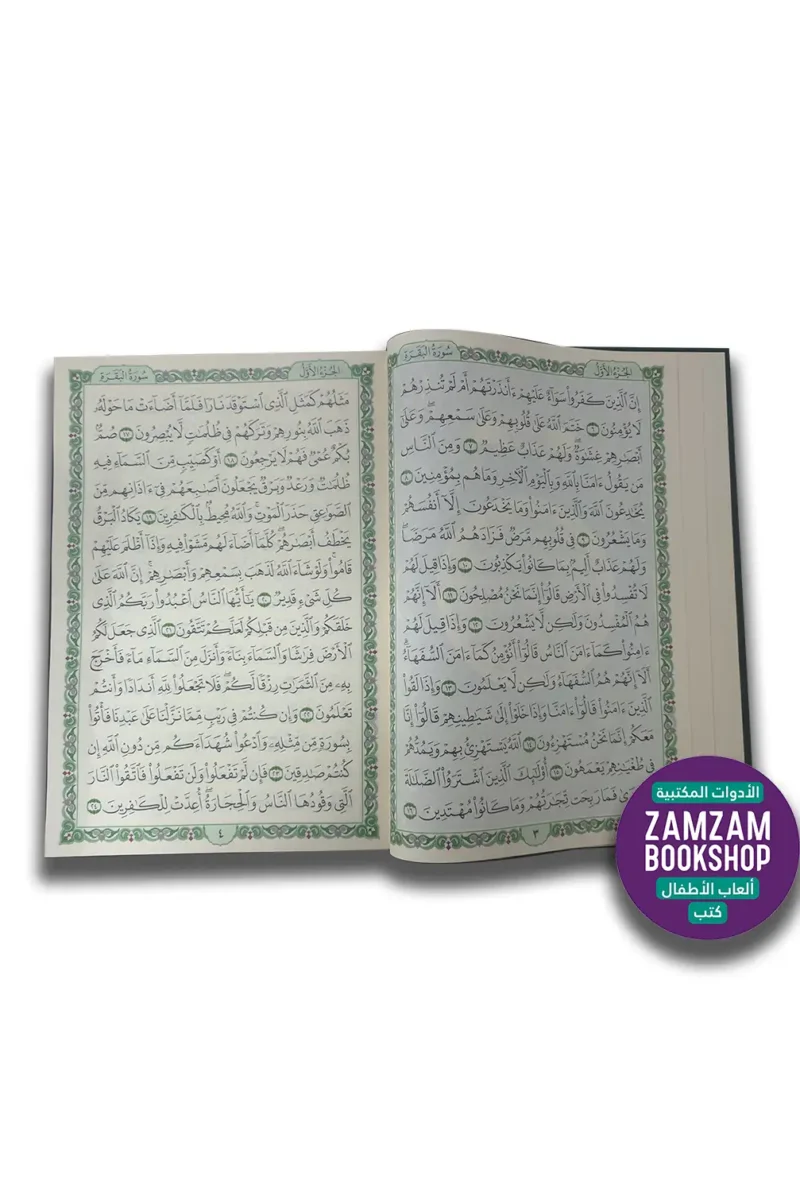 الجزء الأول
سورة البقرة
إِنَّ ٱلَّذِينَ كَفَرُوا۟ سَوَآءٌ عَلَيْهِمْ ءَأَنذَرْتَهُمْ أَمْ لَمْ تُنذِرْهُمْ
لَا يُؤْمِنُونَ ٦ خَتَمَ ٱللَّهُ عَلَىٰ قُلُوبِهِمْ وَعَلَىٰ سَمْعِهِمْ ۖ وَعَلَىٰٓ
أَبْصَـٰرِهِمْ غِشَـٰوَةٌ ۖ وَلَهُمْ عَذَابٌ عَظِيمٌ ٧ وَمِنَ ٱلنَّاسِ
مَن يَقُولُ ءَامَنَّا بِٱللَّهِ وَبِٱلْيَوْمِ ٱلْـَٔاخِرِ وَمَا هُم بِمُؤْمِنِينَ ٨
يُخَـٰدِعُونَ ٱللَّهَ وَٱلَّذِينَ ءَامَنُوا۟ وَمَا يَخْدَعُونَ إِلَّآ أَنفُسَهُمْ
وَمَا يَشْعُرُونَ ٩ فِى قُلُوبِهِم مَّرَضٌ فَزَادَهُمُ ٱللَّهُ مَرَضًا ۖ
وَلَهُمْ عَذَابٌ أَلِيمٌۢ بِمَا كَانُوا۟ يَكْذِبُونَ ١٠ وَإِذَا قِيلَ لَهُمْ
لَا تُفْسِدُوا۟ فِى ٱلْأَرْضِ قَالُوٓا۟ إِنَّمَا نَحْنُ مُصْلِحُونَ ١١ أَلَآ إِنَّهُمْ
هُمُ ٱلْمُفْسِدُونَ وَلَـٰكِن لَّا يَشْعُرُونَ ١٢ وَإِذَا قِيلَ لَهُمْ
ءَامِنُوا۟ كَمَآ ءَامَنَ ٱلنَّاسُ قَالُوٓا۟ أَنُؤْمِنُ كَمَآ ءَامَنَ ٱلسُّفَهَآءُ ۗ
أَلَآ إِنَّهُمْ هُمُ ٱلسُّفَهَآءُ وَلَـٰكِن لَّا يَعْلَمُونَ ١٣ وَإِذَا لَقُوا۟
ٱلَّذِينَ ءَامَنُوا۟ قَالُوٓا۟ ءَامَنَّا وَإِذَا خَلَوْا۟ إِلَىٰ شَيَـٰطِينِهِمْ قَالُوٓا۟ إِنَّا
مَعَكُمْ إِنَّمَا نَحْنُ مُسْتَهْزِءُونَ ١٤ ٱللَّهُ يَسْتَهْزِئُ بِهِمْ وَيَمُدُّهُمْ
فِى طُغْيَـٰنِهِمْ يَعْمَهُونَ ١٥ أُو۟لَـٰٓئِكَ ٱلَّذِينَ ٱشْتَرَوُا۟ ٱلضَّلَـٰلَةَ
فَمَا رَبِحَت تِّجَـٰرَتُهُمْ وَمَا كَانُوا۟ مُهْتَدِينَ ١٦
٣
الجزء الأول
سورة البقرة
مَثَلُهُمْ كَمَثَلِ ٱلَّذِى ٱسْتَوْقَدَ نَارًا فَلَمَّآ أَضَآءَتْ مَا حَوْلَهُۥ
ذَهَبَ ٱللَّهُ بِنُورِهِمْ وَتَرَكَهُمْ فِى ظُلُمَـٰتٍ لَّا يُبْصِرُونَ ١٧ صُمٌّۢ
بُكْمٌ عُمْىٌ فَهُمْ لَا يَرْجِعُونَ ١٨ أَوْ كَصَيِّبٍ مِّنَ ٱلسَّمَآءِ فِيهِ
ظُلُمَـٰتٌ وَرَعْدٌ وَبَرْقٌ يَجْعَلُونَ أَصَـٰبِعَهُمْ فِىٓ ءَاذَانِهِم مِّنَ
ٱلصَّوَٰعِقِ حَذَرَ ٱلْمَوْتِ ۚ وَٱللَّهُ مُحِيطٌۢ بِٱلْكَـٰفِرِينَ ١٩ يَكَادُ ٱلْبَرْقُ
يَخْطَفُ أَبْصَـٰرَهُمْ ۖ كُلَّمَآ أَضَآءَ لَهُم مَّشَوْا۟ فِيهِ وَإِذَآ أَظْلَمَ عَلَيْهِمْ
قَامُوا۟ ۚ وَلَوْ شَآءَ ٱللَّهُ لَذَهَبَ بِسَمْعِهِمْ وَأَبْصَـٰرِهِمْ ۚ إِنَّ ٱللَّهَ عَلَىٰ
كُلِّ شَىْءٍ قَدِيرٌ ٢٠ يَـٰٓأَيُّهَا ٱلنَّاسُ ٱعْبُدُوا۟ رَبَّكُمُ ٱلَّذِى
خَلَقَكُمْ وَٱلَّذِينَ مِن قَبْلِكُمْ لَعَلَّكُمْ تَتَّقُونَ ٢١ ٱلَّذِى جَعَلَ لَكُمُ
ٱلْأَرْضَ فِرَٰشًا وَٱلسَّمَآءَ بِنَآءً وَأَنزَلَ مِنَ ٱلسَّمَآءِ مَآءً فَأَخْرَجَ
بِهِۦ مِنَ ٱلثَّمَرَٰتِ رِزْقًا لَّكُمْ ۖ فَلَا تَجْعَلُوا۟ لِلَّهِ أَندَادًا وَأَنتُمْ
تَعْلَمُونَ ٢٢ وَإِن كُنتُمْ فِى رَيْبٍ مِّمَّا نَزَّلْنَا عَلَىٰ عَبْدِنَا فَأْتُوا۟
بِسُورَةٍ مِّن مِّثْلِهِۦ وَٱدْعُوا۟ شُهَدَآءَكُم مِّن دُونِ ٱللَّهِ إِن
كُنتُمْ صَـٰدِقِينَ ٢٣ فَإِن لَّمْ تَفْعَلُوا۟ وَلَن تَفْعَلُوا۟ فَٱتَّقُوا۟ ٱلنَّارَ
ٱلَّتِى وَقُودُهَا ٱلنَّاسُ وَٱلْحِجَارَةُ ۖ أُعِدَّتْ لِلْكَـٰفِرِينَ ٢٤
٤
الأدوات المكتبية
ZAMZAM
BOOKSHOP
ألعاب الأطفال
كتب